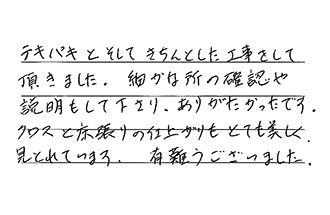 テキパキとそしてきちんとした工事をして
頂きました。細かな所の確認や
説明もして下さり、ありがたかったです。
クロスと床張りの仕上がりもとても美しく、
見とれています。有難うございました。